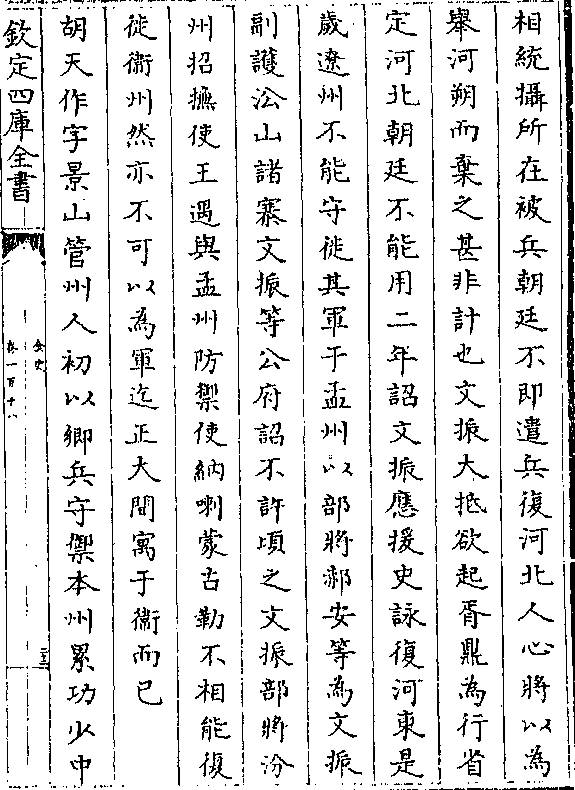 相統攝所在被兵朝廷不即遣兵復河北人心將以為
舉河朔而棄之甚非計也文振大抵欲起胥鼎為行省
定河北朝廷不能用二年詔文振應援史詠復河東是
歲遼州不能守徙其軍于孟州以部將郝安等為文振
副護沁山諸寨文振等公府詔不許頃之文振部將汾
州招撫使王遇與孟州防禦使納喇蒙古勒不相能復
徙衞州然亦不可以為軍迄正大間寓于衞而已
胡天作字景山管州人初以鄉兵守禦本州累功少中
欽定四庫全書
金史
卷一百十八